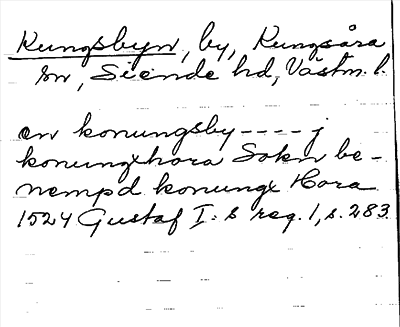 Kungsbyn, by, Kungsåra
sn, Siende hd, Västm. l.
en konungsby ---- j
konungxhora Sokn be-
nempd konungx Hora
1524 Gustaf I:s reg. 1, s. 283.